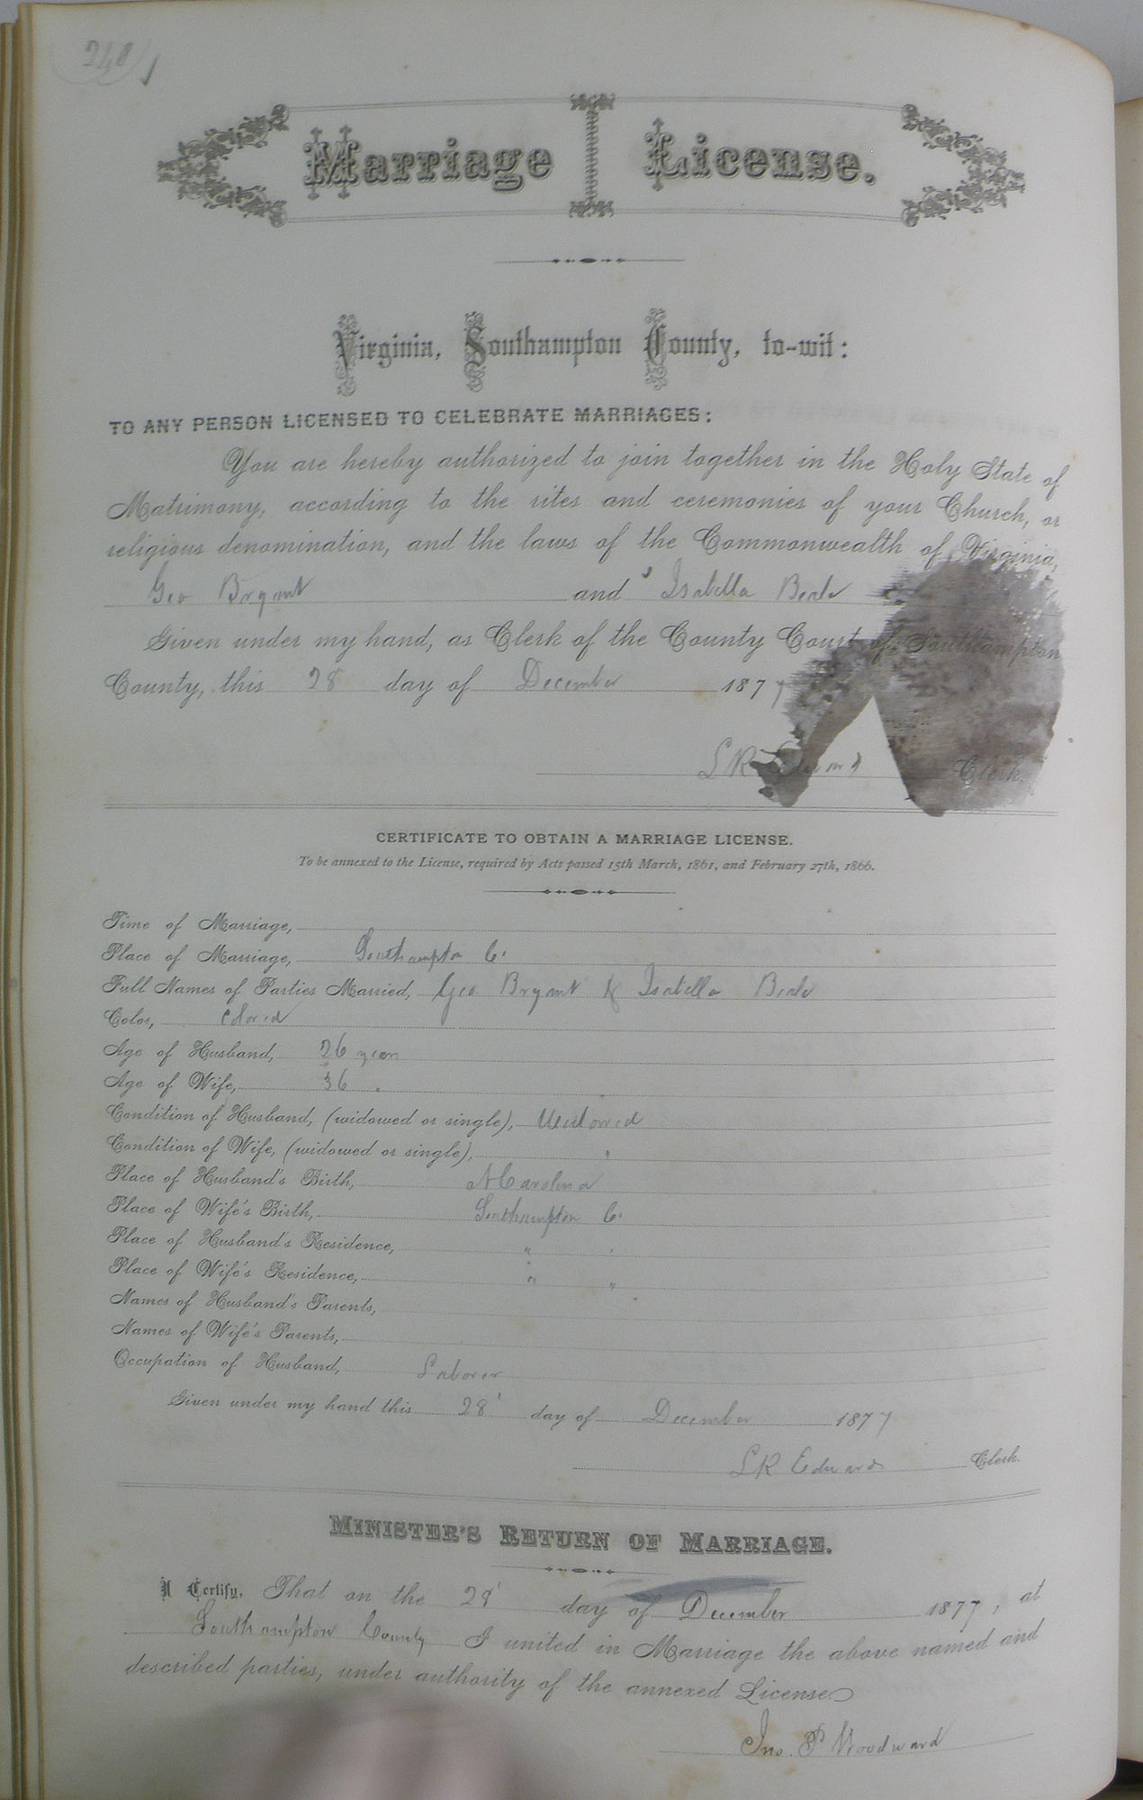 248
Marriage License.
Virginia, Southampton County, to-wit:
TO ANY PERSON LICENSED TO CELEBRATE MARRIAGES:
You are hereby authorized to join together in the Holy State of
Matrimony, according to the rites and ceremonies of your Church, or
religious denomination, and the laws of the Commonwealth of Virginia,
Geo Bryant and Isabella Beale
Given under my hand, as Clerk of the County Court of Southampton
County, this 28 day of December 1877
L R Edwards Clerk.
CERTIFICATE TO OBTAIN A MARRIAGE LICENSE.
To be annexed to the License, required by Acts passed 15th March, 1861, and February 27th, 1866.
Time of Marriage,
Place of Marriage, Southampton Co.
Full Names of Parties Married, Geo Bryant & Isabella Beale
Color, Colored
Age of Husband, 26 years
Age of Wife, 36 "
Condition of Husband, (widowed or single), Widowed
Condition of Wife, (widowed or single), "
Place of Husband's Birth, N Carolina
Place of Wife's Birth, Southampton Co.
Place of Husband's Residence, " "
Place of Wife's Residence, " "
Names of Husband's Parents,
Names of Wife's Parents,
Occupation of Husband, Laborer
Given under my hand this 28' day of December 1877
L R Edwards Clerk.
MINISTER'S RETURN OF MARRIAGE.
I Certify, That on the 28' day of December 1877, at
Southampton County I united in Marriage the above named and
described parties, under authority of the annexed License
Jno. P Woodward